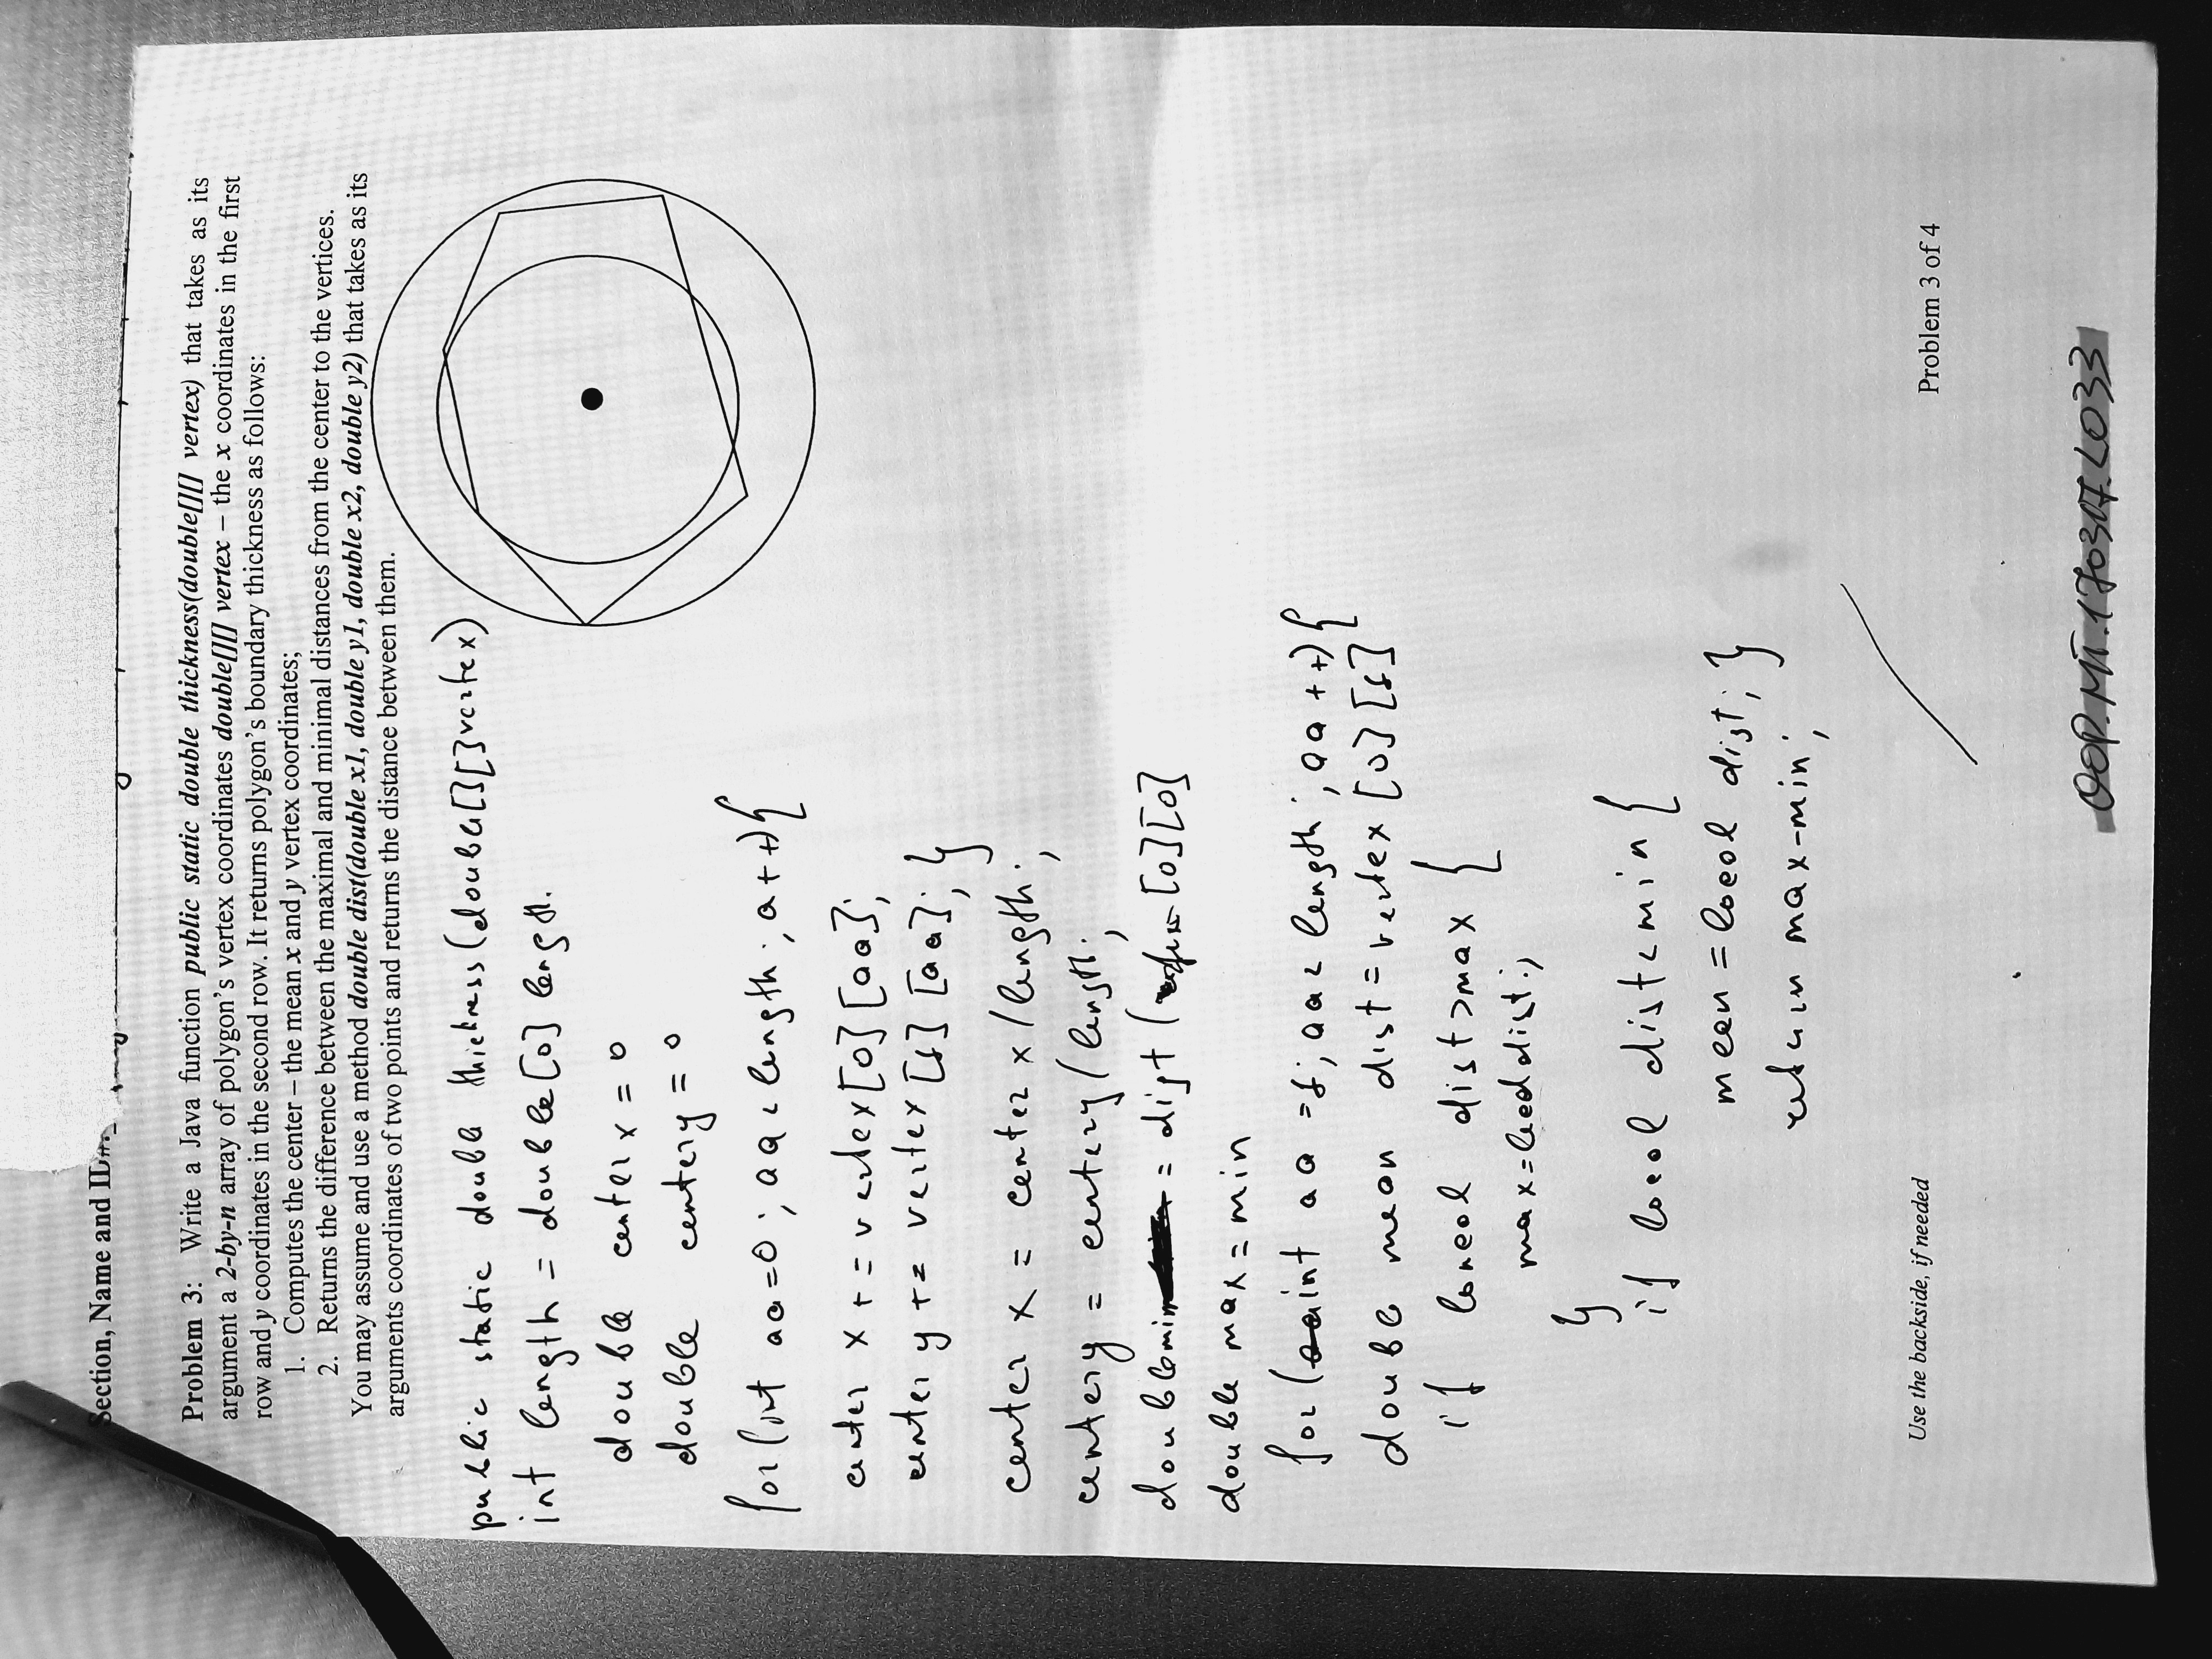 Section, Name and ID#:
Problem 3: Write a Java function public static double thickness(double[][] vertex) that takes as its
argument a 2-by-n array of polygon's vertex coordinates double[][] vertex – the x coordinates in the first
row and y coordinates in the second row. It returns polygon's boundary thickness as follows:
1. Computes the center – the mean x and y vertex coordinates;
2. Returns the difference between the maximal and minimal distances from the center to the vertices.
You may assume and use a method double dist(double x1, double y1, double x2, double y2) that takes as its
arguments coordinates of two points and returns the distance between them.
public static double thickness (double[][]vertex)
int length = double[0] length.
double center x = 0
double centery = 0
for (int aa=0; aa < length; a++){
center x += vertex[0][aa];
center y += vertex [1] [aa]; }
center x = center x / length;
centery = centery / length;
double min = dist ( [0][0]
double max = min
for (int aa = 1; aa < length; aa ++){
double mean dist = vertex [0][1]
if dist > max {
max = dist;
}
if local dist < min {
mean = local dist; }
return max-min;
Use the backside, if needed
Problem 3 of 4
OOP.MT.170317.L033